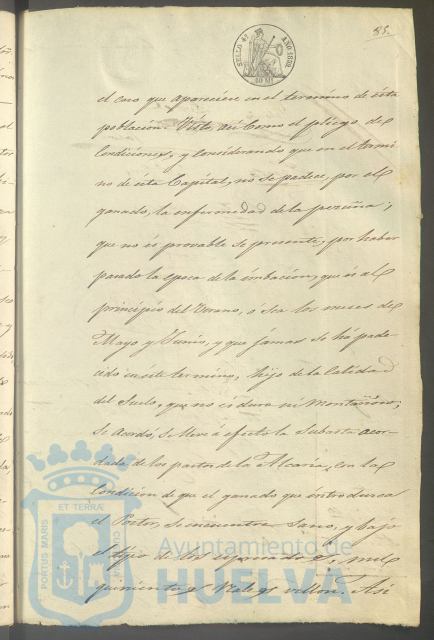 85.
SELLO 4º AÑO 1859
40 Ms
el caso que apareciese en el termino de ésta
poblacion. Visto asi como el pliego de
Condiciones, y considerando que en el termi
no de ésta Capital, no se padece, por el
ganado, la enfermedad de la pezuña;
que no és provable se presente, por haber
pasado la epoca de la imbacion, que és al
principio del Verano, ó sea los meses de
Mayo y Junio, y que jamas se há pade-
cido en éste termino, hijo de la Calidad
del Suelo, que no és duro ni Montañoso;
Se Acordó, se lleve á efecto la Subasta acor-
dada de los pastos de la Alcaria, con la
Condicion de que el ganado que introduzca
el Postor, se encuentre Sano, y bajo
el tipo de los espresados mil
quinientos Reales vellon. Asi
PORTUS MARIS ET TERRÆ CUSTODIA
Ayuntamiento de
HUELVA